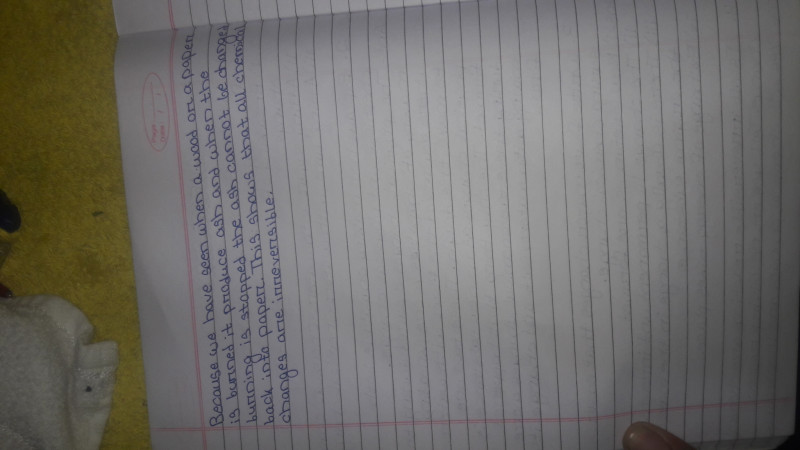 Because we have seen when a wood or a paper
is burned it produce ash and when the
burning is stopped the ash cannot be changed
back into paper. This shows that all chemical
changes are irreversible.